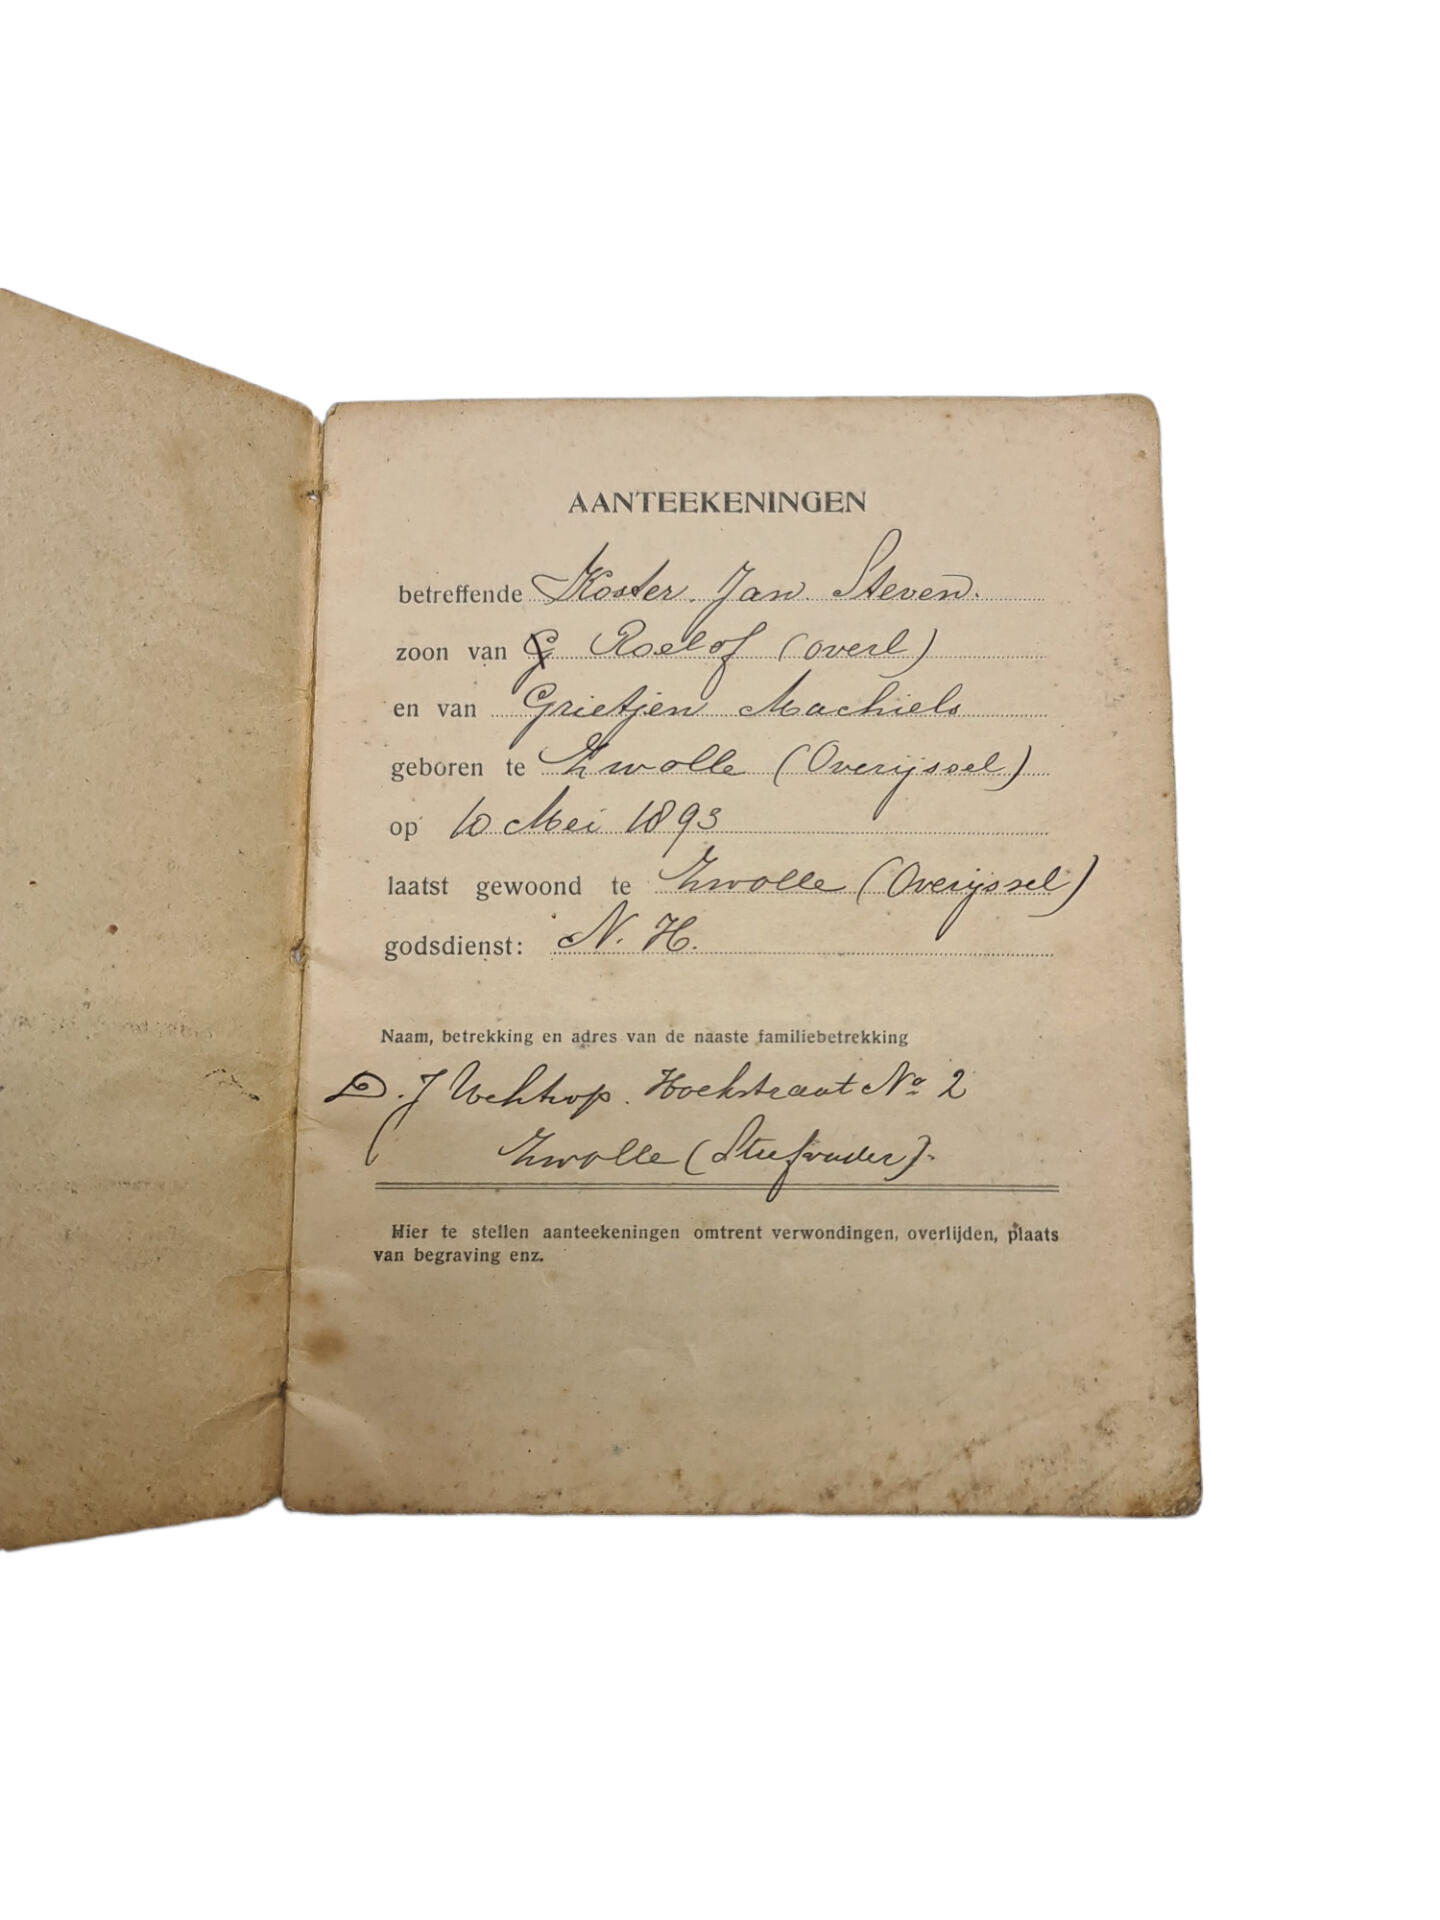 AANTEEKENINGEN
betreffende Koster. Jan. Steven.
zoon van Roelof (overl)
en van Grietjen Machiels
geboren te Zwolle (Overijssel)
op 10 Mei 1893
laatst gewoond te Zwolle (Overijssel)
godsdienst: N. H.
Naam, betrekking en adres van de naaste familiebetrekking
D. J Hoekstraat No 2
Zwolle (Stiefvader).
Hier te stellen aanteekeningen omtrent verwondingen, overlijden, plaats
van begraving enz.